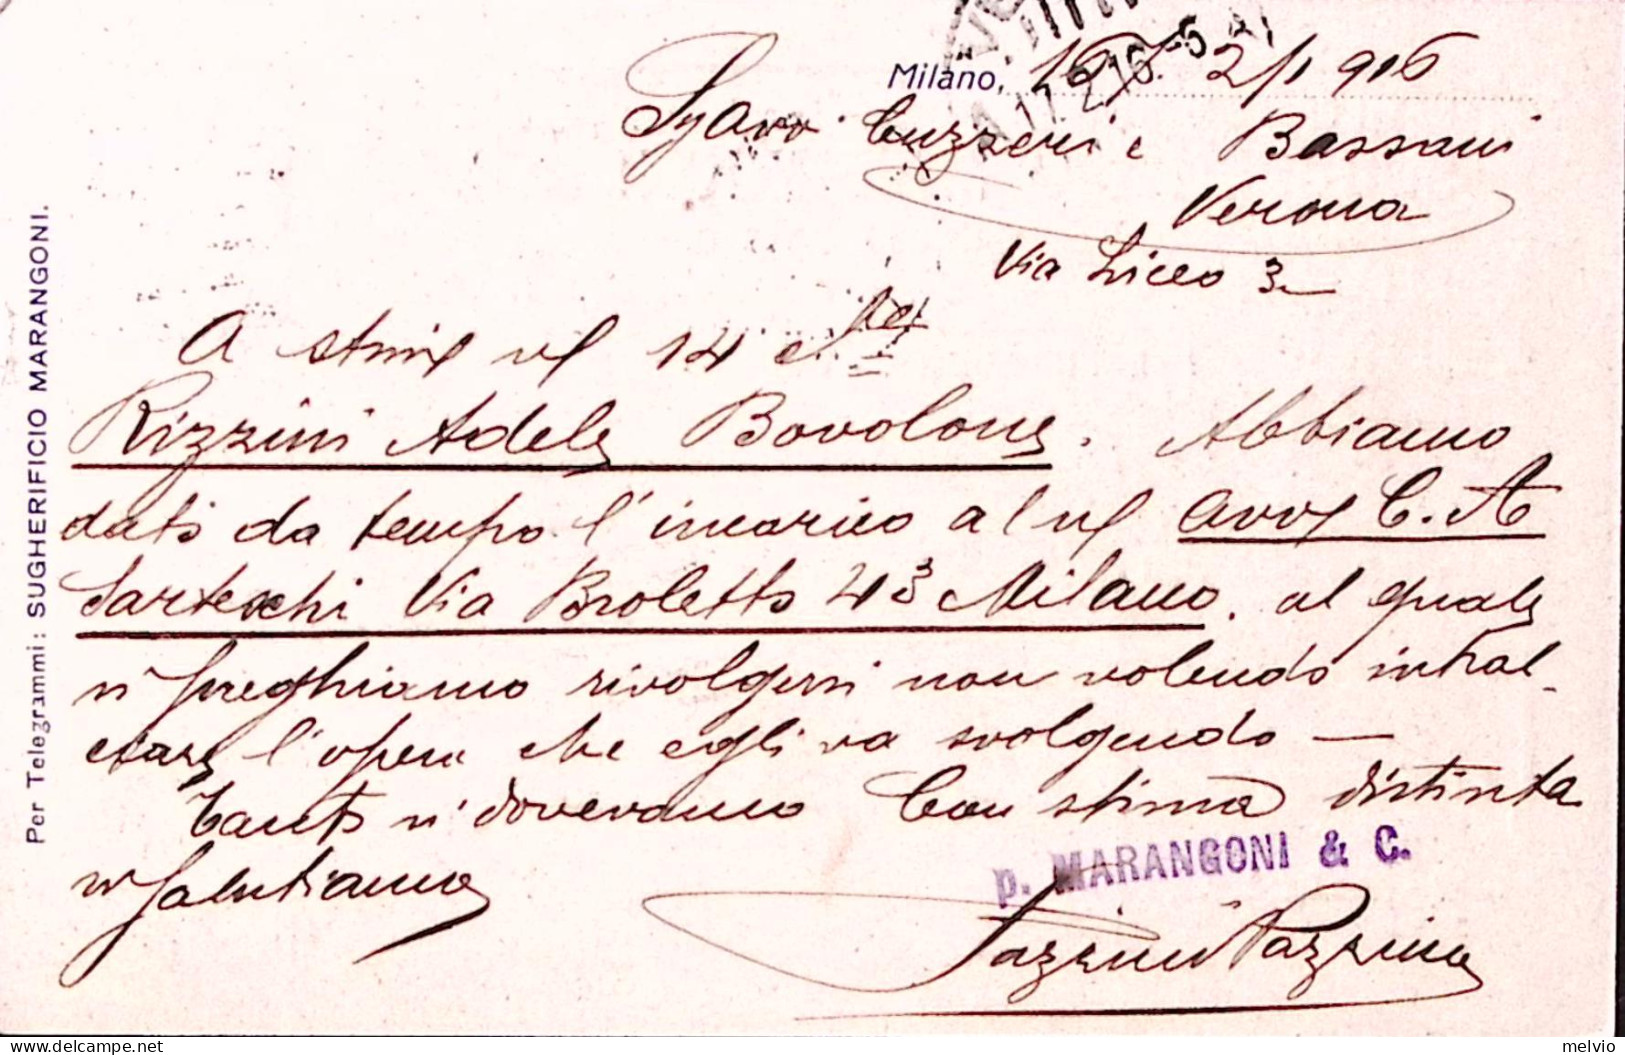 Milano, 16/2/1916
Avv. Cuzzeri e Bassani
Verona
Via Liceo 3
A stim 14
Rizzini Adele Bovolone. Abbiamo
dato da tempo l'incarico al Avv C. A
Sarteschi Via Broletto 43 Milano. al quale
vi preghiamo rivolgersi non volendo intral-
ciare l'opera che egli va svolgendo —
Tanto vi dovevamo Con stima distinta
vi salutiamo
p. MARANGONI & C.
Per Telegrammi: SUGHERIFICIO MARANGONI.
melvio